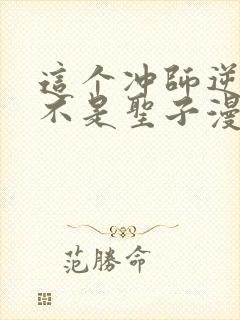 這个冲師逆
不是聖子漫
范勝命